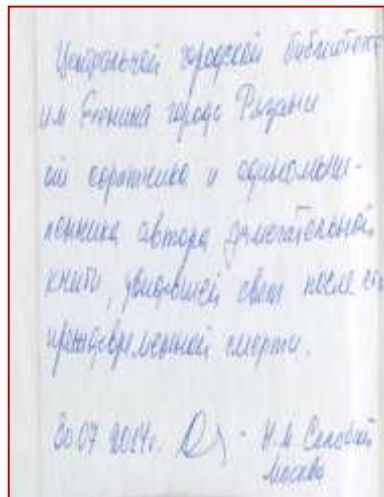 Центральной городской библиотеке
им Есенина города Рязани
от соратника и единомыш-
ленника автора замечательной
книги, увидевшей свет после его
преждевременной смерти.
30.07 2014г. - Н.М.
Москва